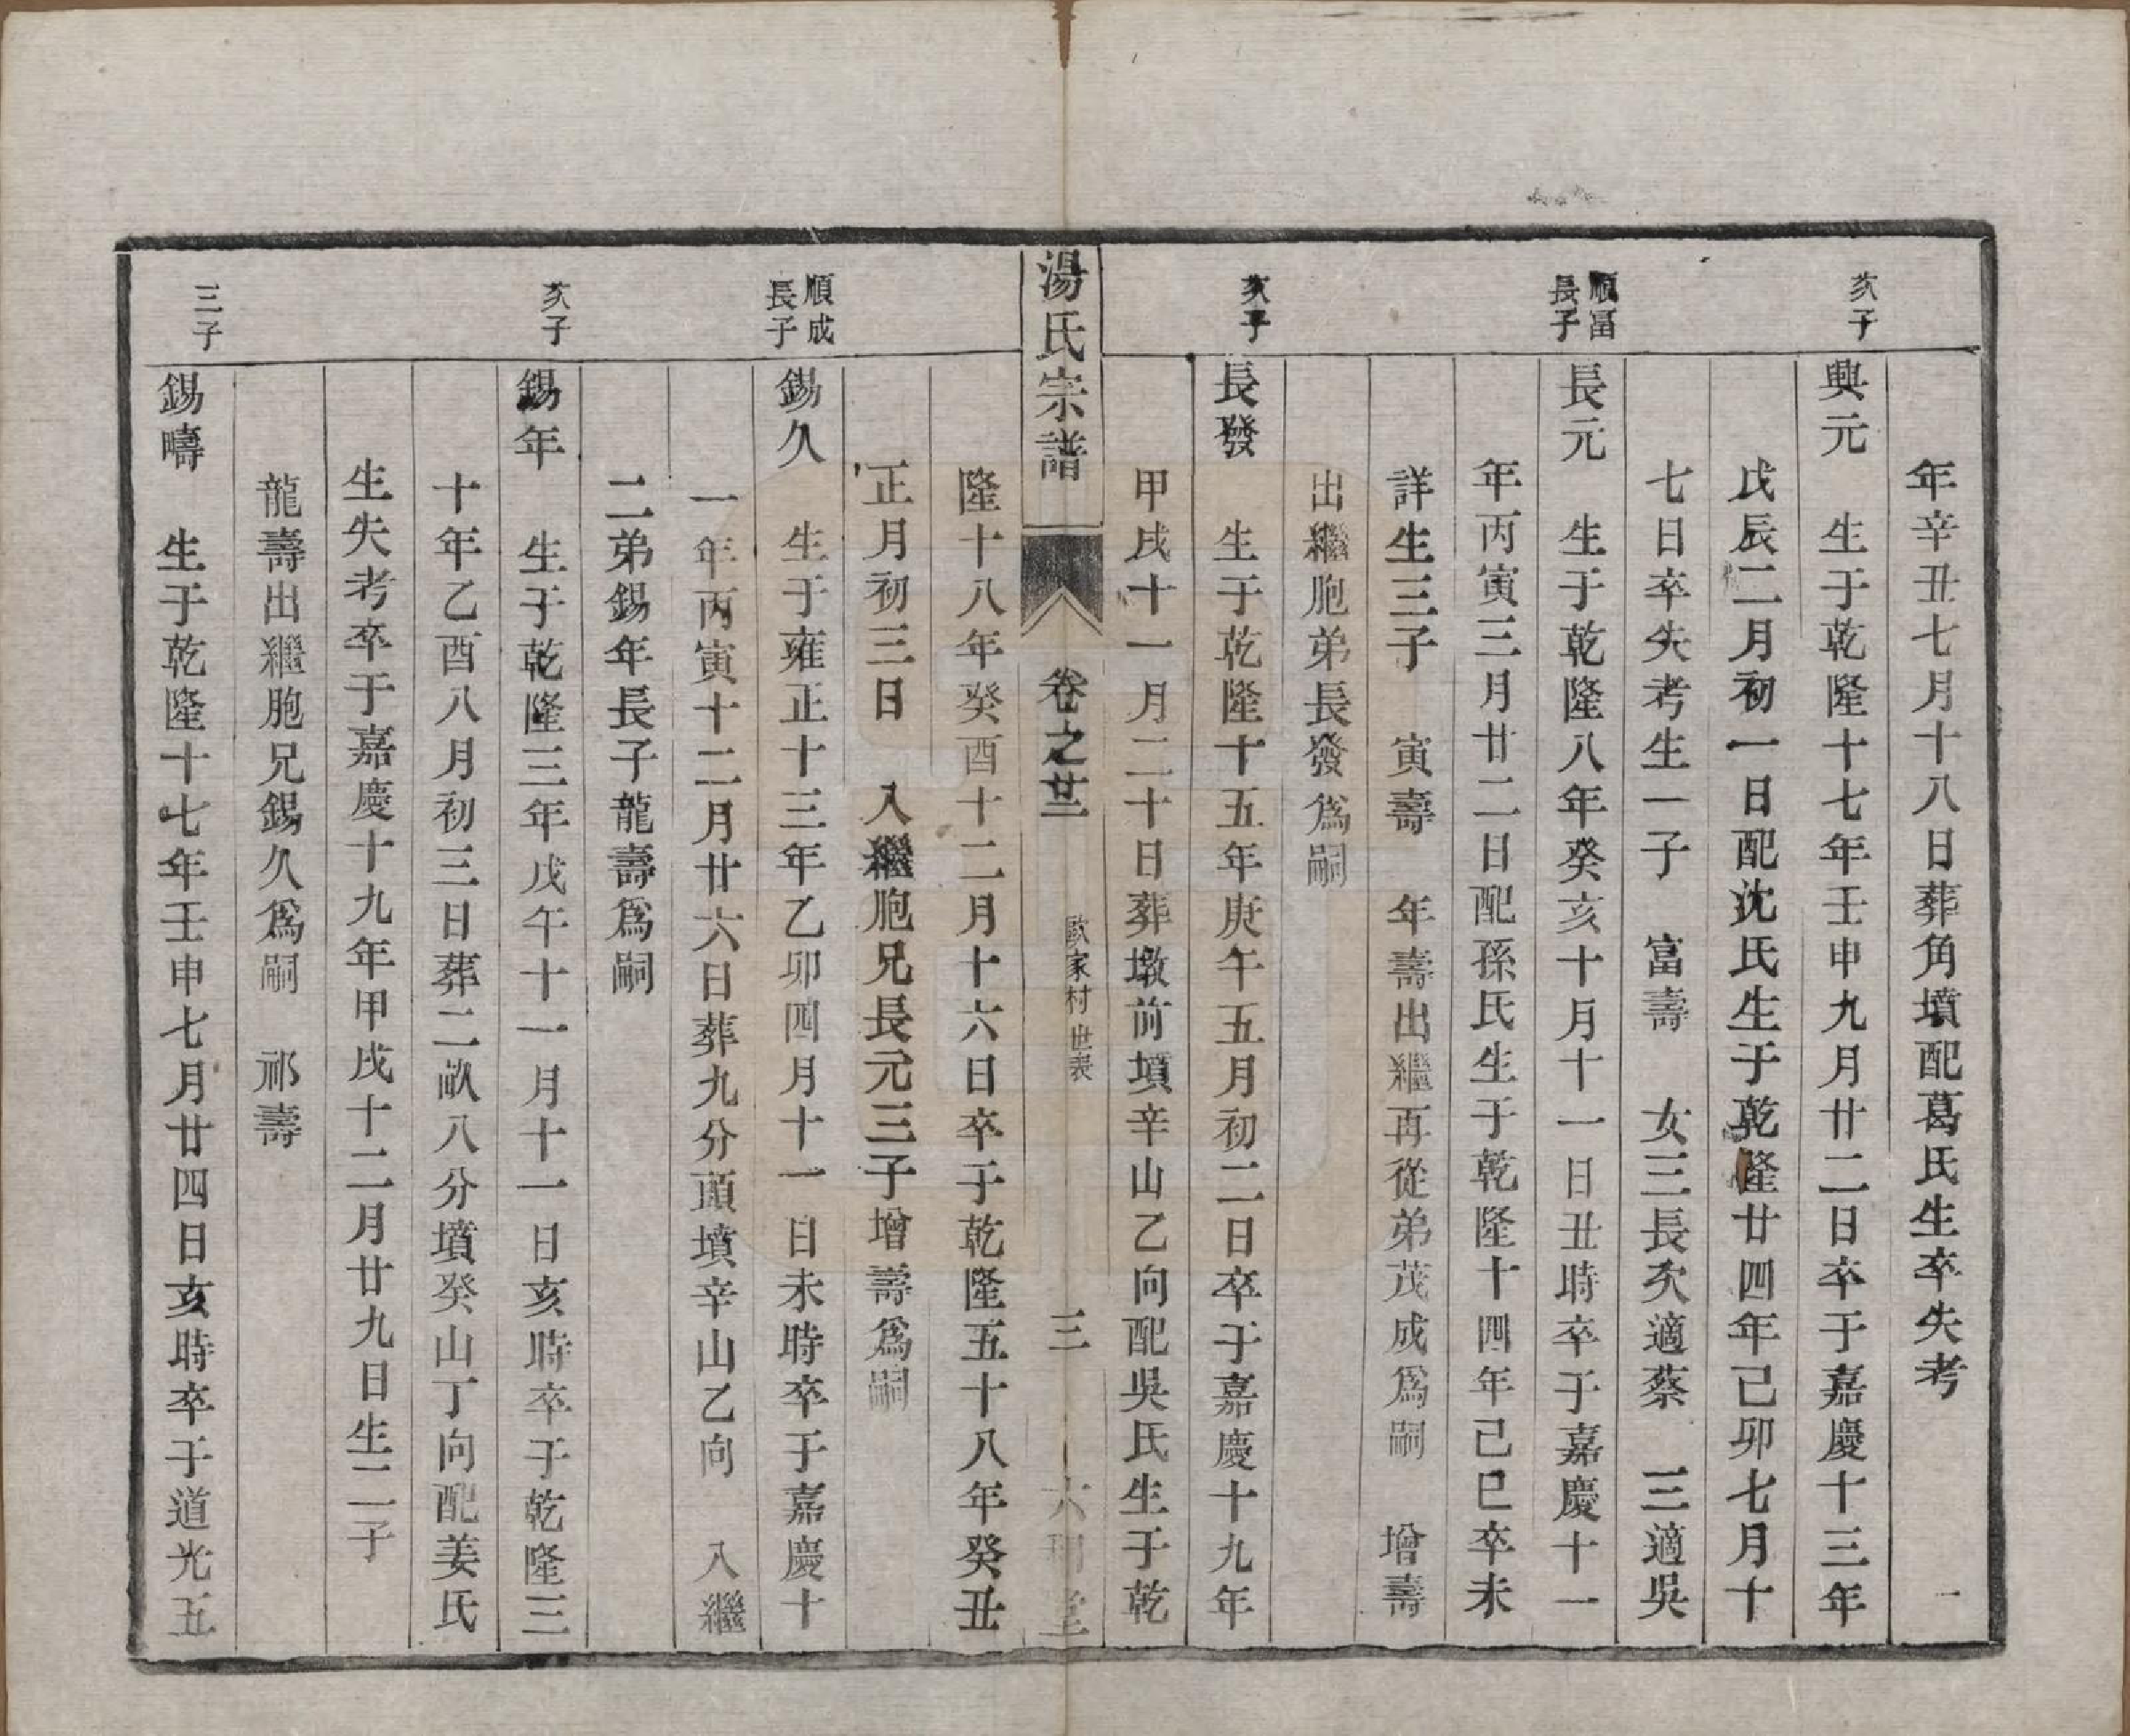 年辛丑七月十八日葬角墳配葛氏生卒失考
次子
興元　生于乾隆十七年壬申九月廿二日卒于嘉慶十三年
戊辰二月初一日配沈氏生于乾隆廿四年己卯七月十
七日卒失考生一子　富壽　女三長次適蔡　三適吳
順富
長子
長元　生于乾隆八年癸亥十月十一日丑時卒于嘉慶十一
年丙寅三月廿二日配孫氏生于乾隆十四年己巳卒未
詳生三子　寅壽　年壽出繼再從弟茂成爲嗣　增壽
出繼胞弟長發爲嗣
次子
長發　生于乾隆十五年庚午五月初二日卒于嘉慶十九年
甲戌十一月二十日葬墩前墳辛山乙向配吳氏生于乾
湯氏宗譜
卷之廿三
家村世表
三
隆十八年癸酉十二月十六日卒于乾隆五十八年癸丑
正月初三日　入繼胞兄長元三子增壽爲嗣
順成
長子
錫久　生于雍正十三年乙卯四月十一日未時卒于嘉慶十
一年丙寅十二月廿六日葬九分頭墳辛山乙向　入繼
二弟錫年長子龍壽爲嗣
次子
錫年　生于乾隆三年戊午十一月十一日亥時卒于乾隆三
十年乙酉八月初三日葬二畝八分墳癸山丁向配姜氏
生失考卒于嘉慶十九年甲戌十二月廿九日生二子
龍壽出繼胞兄錫久爲嗣　祁壽
三子
錫疇　生于乾隆十七年壬申七月廿四日亥時卒于道光五